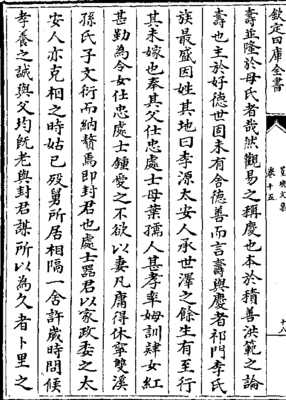 欽定四庫全書
篁墩文集
卷十五
十八
壽並隆於母氏者哉然觀易之稱慶也本於積善洪範之論
壽也主於好德世固未有舍德善而言壽與慶者祁門李氏
族最盛因姓其地曰李源太安人承世澤之餘生有至行
其未嫁也奉其父仕忠處士母葉孺人甚孝率姆訓肄女紅
甚勤為今女仕忠處士鍾愛之不欲以妻凡庸得休寧雙溪
孫氏子文衍而納贄焉即封君也處士器君以家政委之太
安人亦克相之時姑已殁舅所居相隔一舍許歲時問候
孝養之誠與父均旣老與封君謀所以為久者卜里之